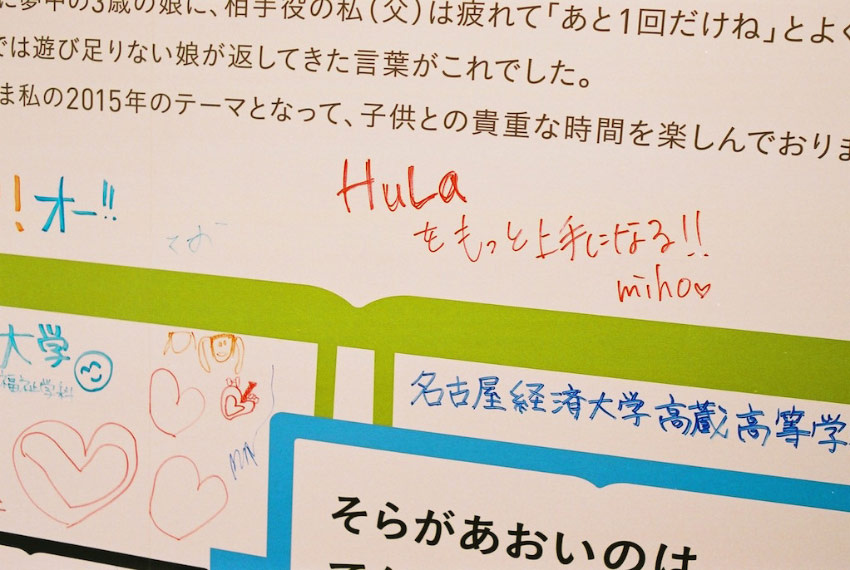 に夢中の3歳の娘に、相手役の私(父)は疲れて「あと1回だけね」とよく
では遊び足りない娘が返してきた言葉がこれでした。
ま私の2015年のテーマとなって、子供との貴重な時間を楽しんでおりま
！オー!!
HuLa
をもっと上手になる!!
miho♡
大学
名古屋経済大学高蔵高等学
そらがあおいのは